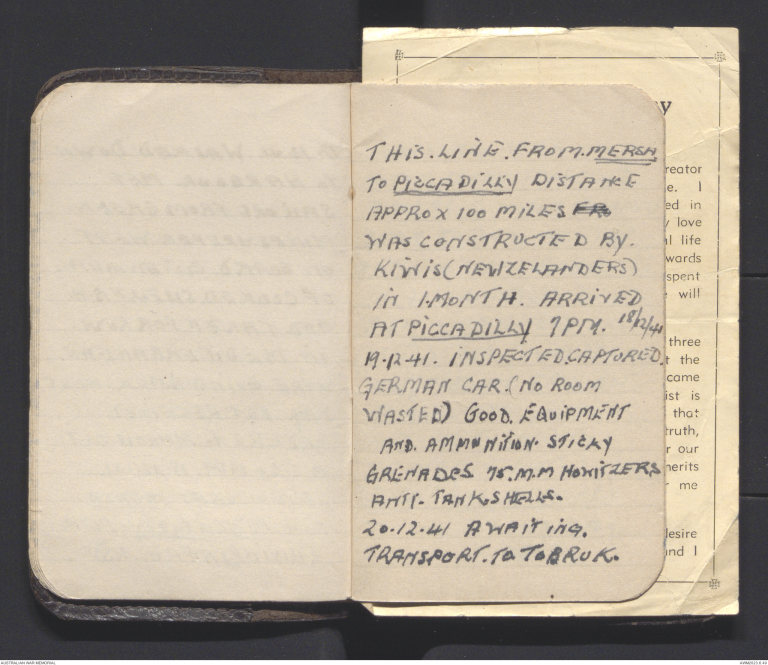 THIS. LINE. FROM. MERSA
TO PICCADILLY DISTANCE
APPROX 100 MILES FRO
WAS CONSTRUCTED BY.
KIWIS (NEWZELANDERS)
IN 1.MONTH. ARRIVED
AT PICCADILLY 7PM. 18/12/41
19.12.41. INSPECTED.CAPTURED.
GERMAN CAR. (NO ROOM
WASTED) GOOD. EQUIPMENT
AND. AMMUNITION. STICKY
GRENADES 75.M.M HOWITZERS
ANTI. TANK.SHELLS.
20.12.41 AWAITING.
TRANSPORT. TO TOBRUK.
y
reator
e. I
ed in
y love
al life
wards
spent
will
three
t the
came
ist is
that
truth,
r our
merits
r me
desire
and I
AUSTRALIAN WAR MEMORIAL